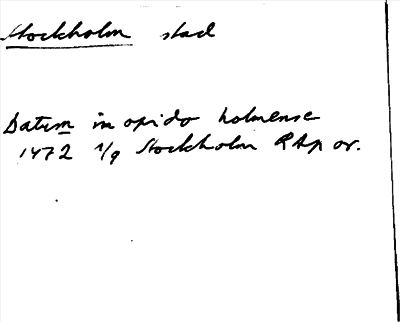 Stockholm stad
Datum in opido holmense
1472 1/9 Stockholm RAp or.